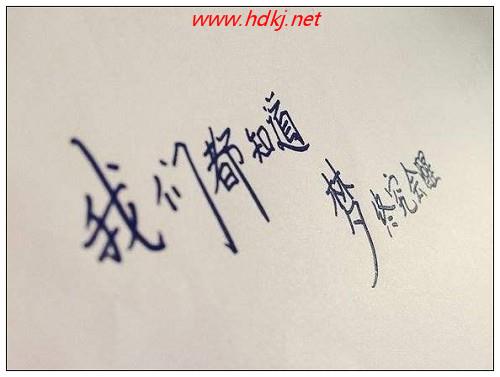 www.hdkj.net
我们都知道
梦终究会醒